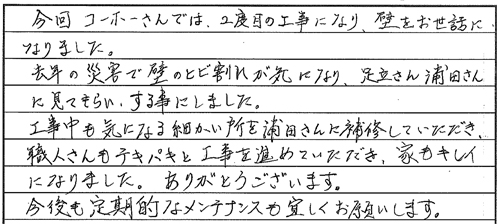 今回 コーホーさんでは、2度目の工事になり、壁をお世話に
なりました。
去年の災害で壁のヒビ割れが気になり、足立さん浦田さん
に見てもらい、する事にしました。
工事中も気になる細かい所を浦田さんに補修していただき、
職人さんもテキパキと工事を進めていただき、家もキレイ
になりました。ありがとうございます。
今後も定期的なメンテナンスも宜しくお願いします。